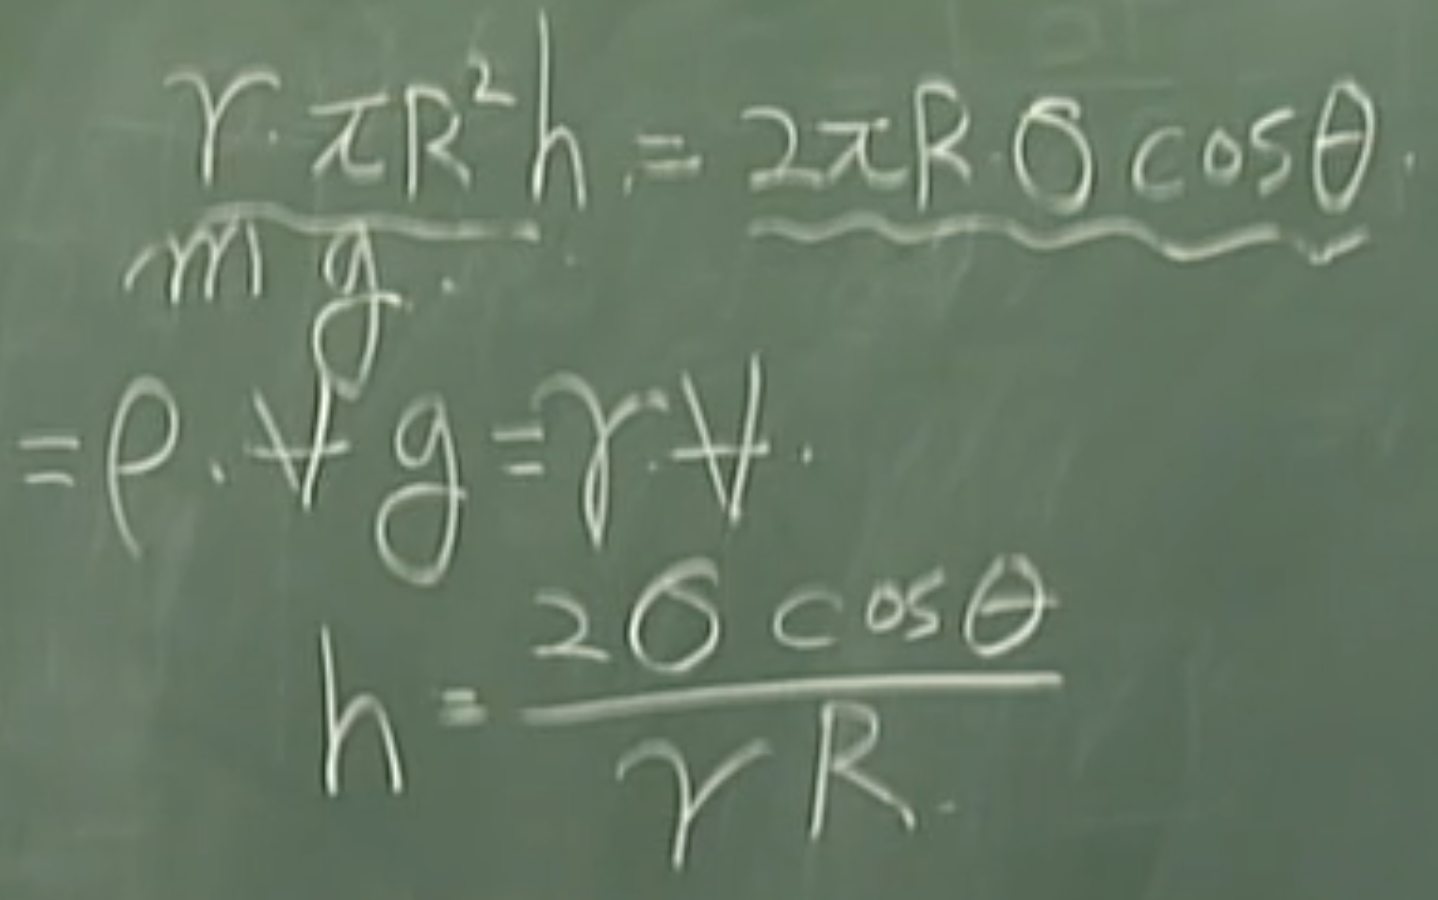 γ·πR²h = 2πR·σ cosθ.
mg.
=ρ.V̶g=γ.V̶.
h = 2σ cosθ / γR.